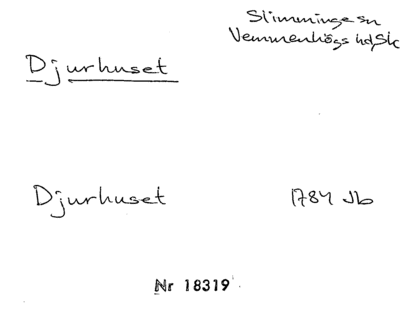 Slimminge sn
Vemmenhögs hd, Sk
Djurhuset
Djurhuset 1784 Jb
Nr 18319